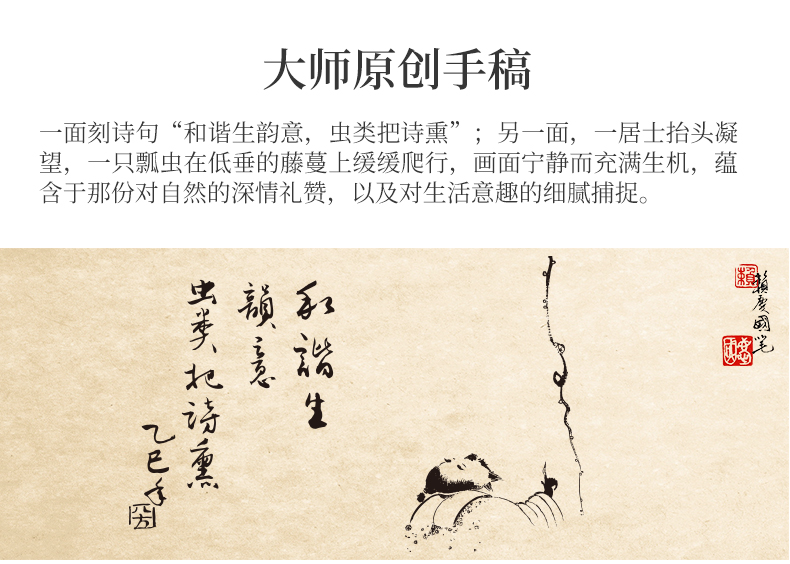 大师原创手稿
一面刻诗句“和谐生韵意，虫类把诗熏”；另一面，一居士抬头凝
望，一只瓢虫在低垂的藤蔓上缓缓爬行，画面宁静而充满生机，蕴
含于那份对自然的深情礼赞，以及对生活意趣的细腻捕捉。
賴慶國筆
賴
和諧生
韻意
虫类把詩熏
乙巳年